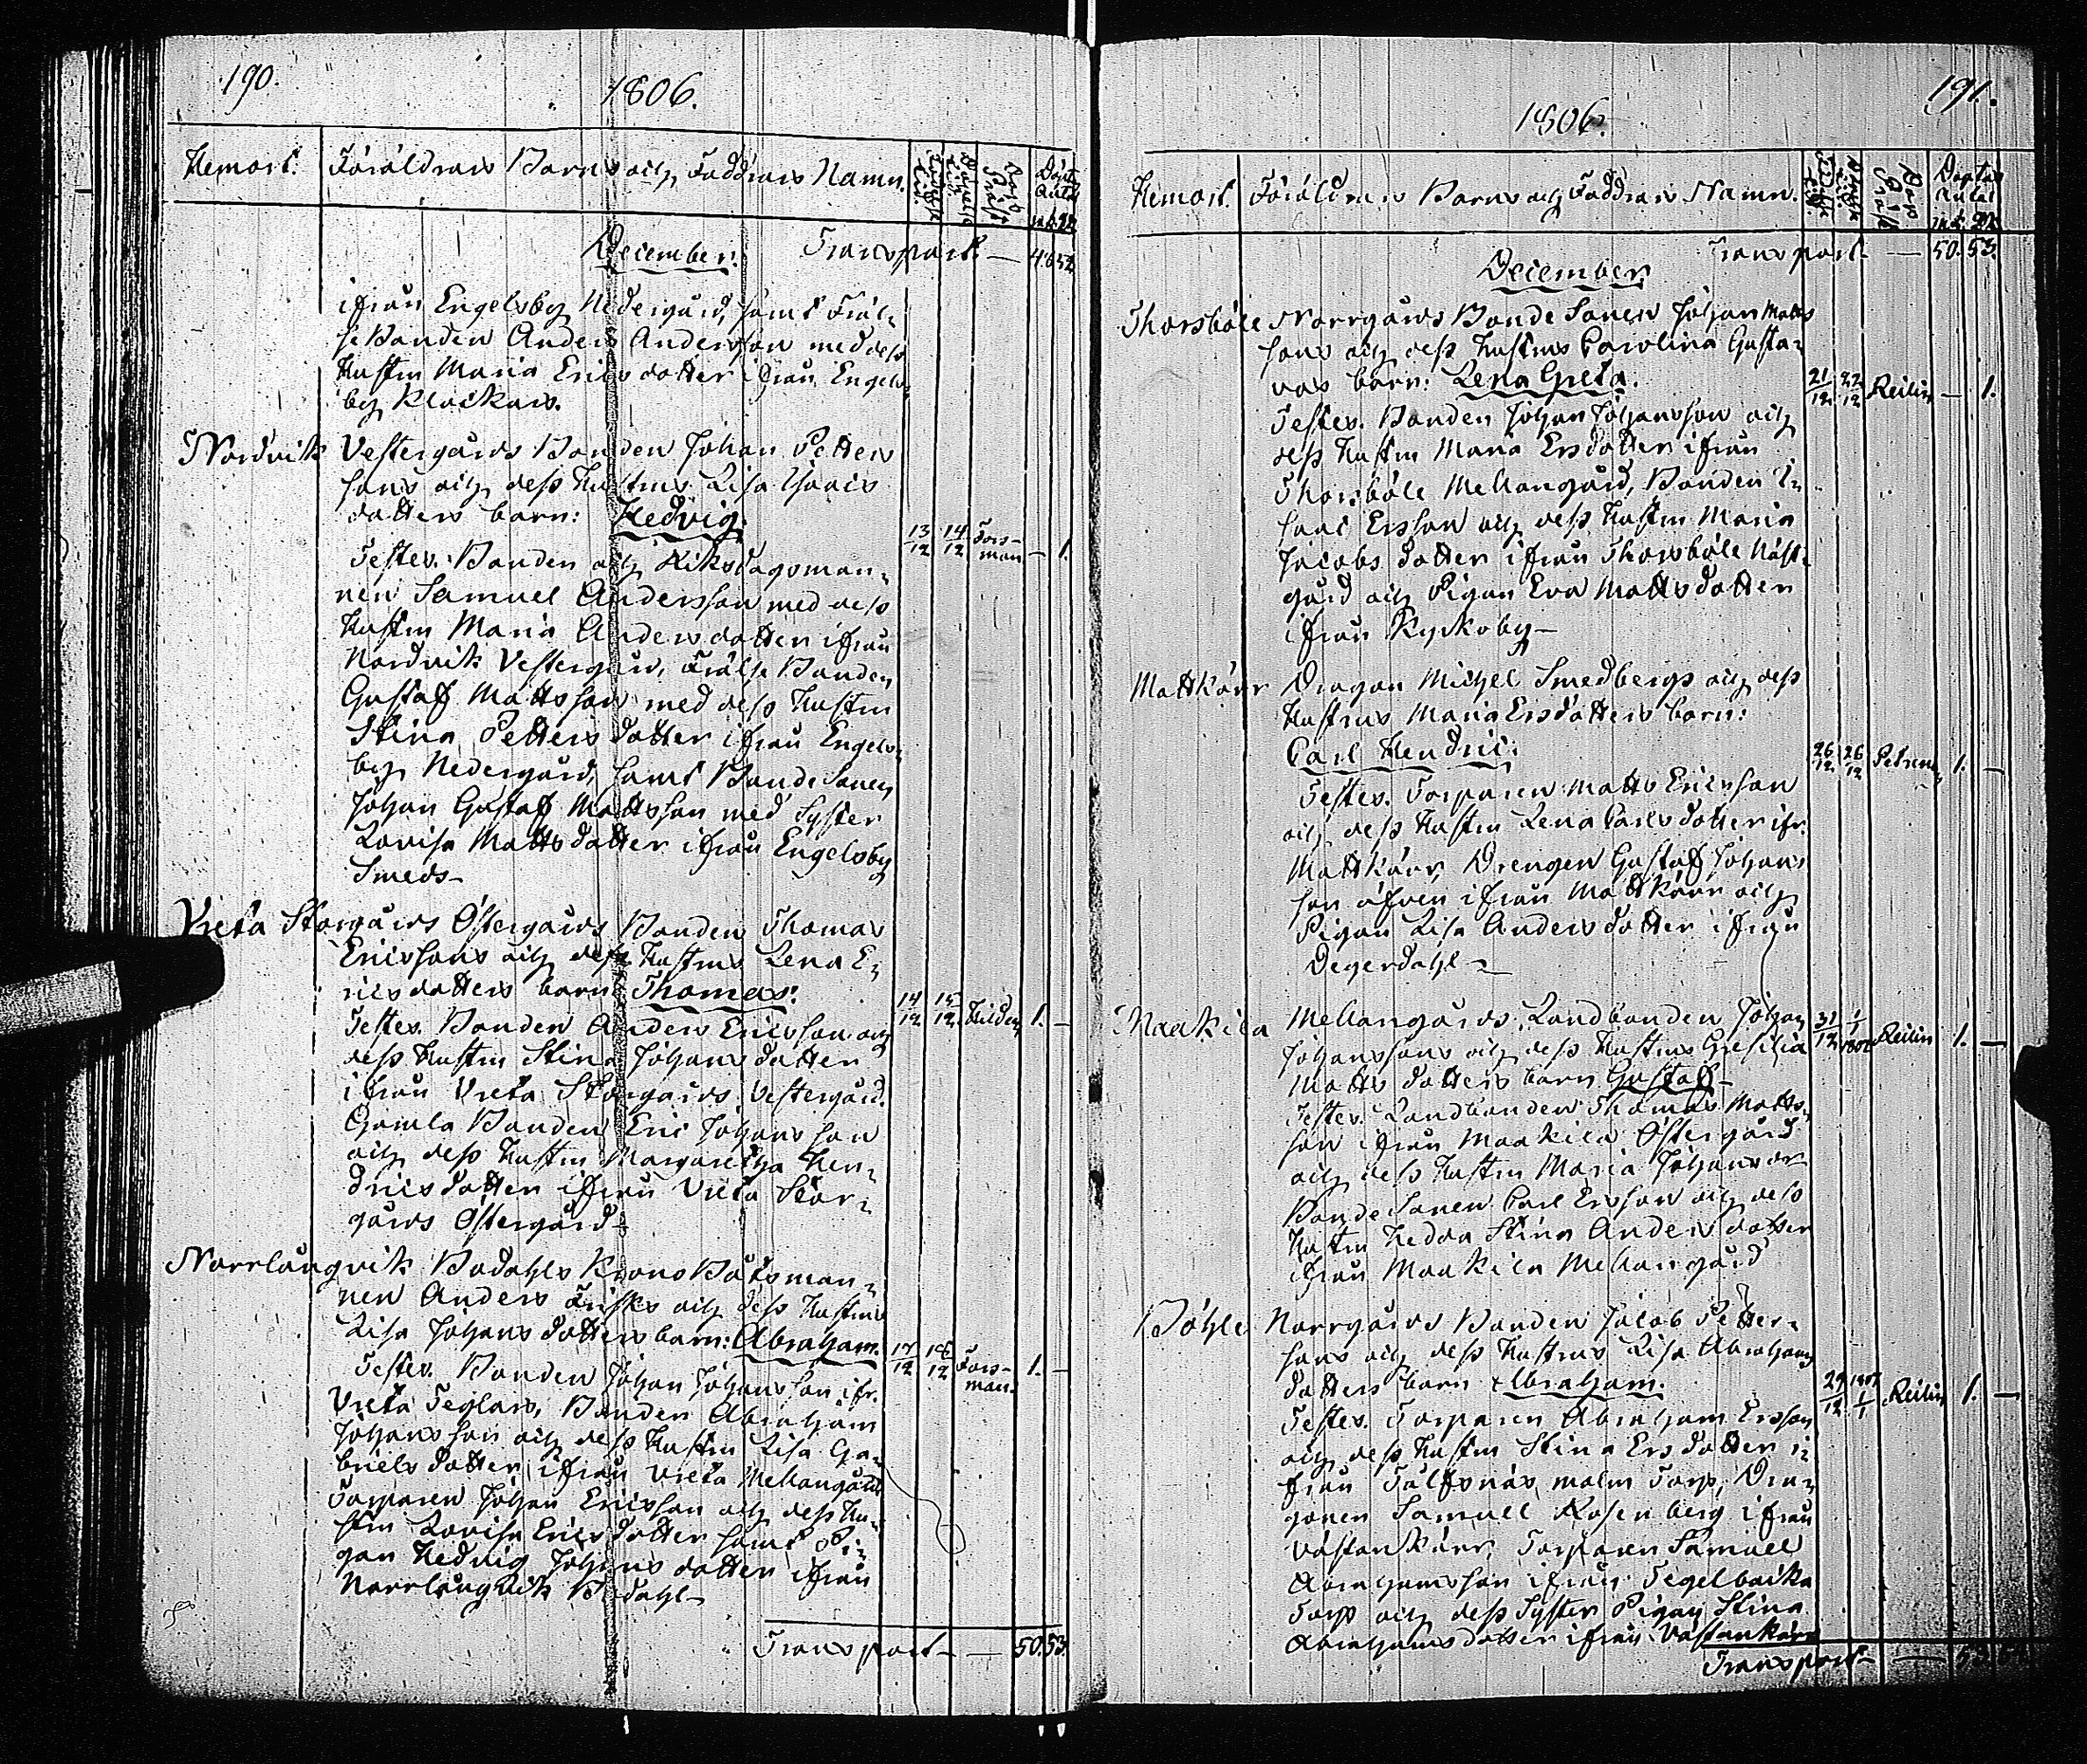 190.
1806.
Hemort. Föräldrars Barns och Faddrars Namn.
December. Transport — 48 52
ifrån Engelsby Nedergård, samt Fräl-
se Bonden Anders Andersson med dess
Hustru Maria Ericsdotter ifrån Engels-
by Klockars.
Nordvik Vestergårds Bonden Johan Petters
sons och dess Hustrus Lisa Isaacs
dotters barn: Hedvig. 13/12 14/12 Fors-man — 1.
Testes. Bonden och Riksdagsman-
nen Samuel Andersson med dess
Hustru Maria Andersdotter ifrån
Nordvik Vestergård, Frälse Bonden
Gustaf Mattsson med dess Hustru
Stina Pettersdotter ifrån Engels-
by Nedergård, samt Bonde Sonen
Johan Gustaf Mattsson med Syster
Lovisa Mattsdotter ifrån Engelsby
Smeds—
Vreta Storgårds Östergårds Bonden Thomas
Ericssons och dess Hustrus Lena E-
ricsdotters barn Thomas. 14/12 15/12 Hilden 1. —
Testes. Bonden Anders Ericsson och
dess Hustru Stina Johansdotter
ifrån Vreta Storgårds Vestergård.
Gamla Bonden Eric Johansson
och dess Hustru Margaretha Hen-
dricsdotter ifrån Vreta Stor-
gårds Östergård—
Norrlångvik Bodahls Krono Båtsman-
nen Anders Frisks och dess Hustrus
Lisa Johansdotters barn: Abraham. 17/12 18/12 Fors-man. 1. —
Testes. Bonden Johan Johansson ifr.
Vreta Teglars, Bonden Abraham
Johansson och dess Hustru Lisa Ga-
brielsdotter ifrån Vreta Mellangård
Torparen Johan Ericsson och dess Hu-
stru Lovisa Ericsdotter samt Pi-
gan Hedvig Johansdotter ifrån
Norrlångvik Bodahl—
Transport — — 50. 53.
191.
1806.
Hemort. Föräldrars Barns och Faddrars Namn.
Transport — — 50. 53.
December
Thorsböle Norrgårds Bonde Sonen Johan Matts
sons och dess Hustrus Carolina Gusta-
vas barn: Lena Greta. 21/12 22/12 Reilin — 1.
Testes. Bonden Johan Johansson och
dess Hustru Maria Ersdotter ifrån
Thorsböle Mellangård, Bonden I-
saac Ersson och dess Hustru Maria
Jacobsdotter ifrån Thorsböle Näst-
gård och Pigan Eva Mattsdotter
ifrån Kyrkoby—
Mattkärr Dragon Michel Smedbergs och dess
Hustrus Maria Ersdotters barn:
Carl Hendric. 26/12 26/12 1. —
Testes. Torparen Matts Ericsson
och dess Hustru Lena Carlsdotter ifr.
Mattkärr, Drengen Gustaf Johans
son äfven ifrån Mattkärr och
Pigan Lisa Andersdotter ifrån
Degerdahl—
Maakila Mellangårds Landbonden Johan 31/12 1/1 Reilin 1. —
Johanssons och dess Hustrus
Mattsdotters barn Gustaf—
Testes. Landbonden Thomas Matts-
son ifrån Maakila Östergård
och dess Hustru Maria Johansdr
Bonde Sonen Carl Ersson och dess
Hustru Hedda Stina Andersdotter
ifrån Maakila Mellangård
Böhle Norrgårds Bonden Jacob Petter-
sons och dess Hustrus Lisa Abrahams
dotters barn Abraham. 29/12 1807 1/1 Reilin 1. —
Testes. Torparen Abraham Ersson
och dess Hustru Stina Ersdotter i-
från Tälfsnäs malm Torp, Dra-
gonen Samuel Rosenberg ifrån
Västankärr, Torparen Samuel
Abrahamsson ifrån Tegelbacka
Torp och dess Syster Pigan Stina
Abrahamsdotter ifrån Västankärr
Transport —